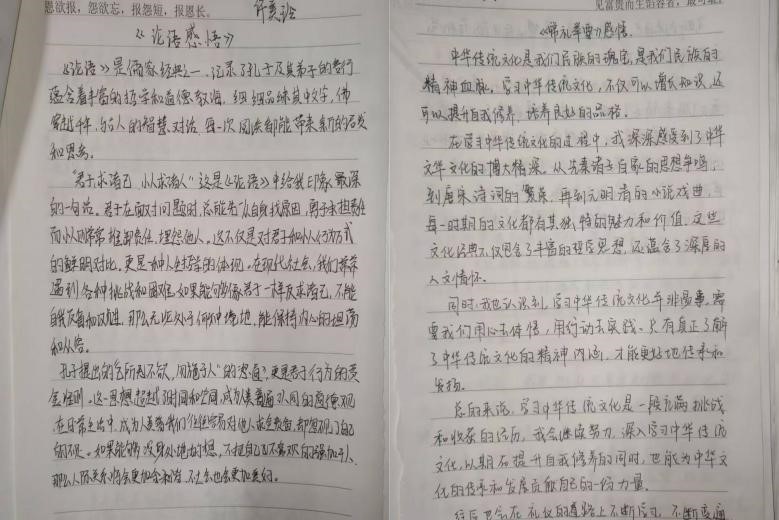 恩欲报，怨欲忘，报怨短，报恩长。
《论语感悟》
《论语》是儒家经典之一，记录了孔子及其弟子的言行
蕴含着丰富的哲学和道德教诲，细细品味其中文字，佛
穿越千年，与古人的智慧对话，每一次阅读都能带来新的启发
和思考。
"君子求诸己，小人求诸人"这是《论语》中给我印象最深
的一句话。君子在面对问题时，总能先从自身找原因，勇于承担责任
而小人则常常推卸责任，埋怨他人。这不仅是对君子和小人行为方式
的鲜明对比，更是一种人生哲学的体现。在现代社会，我们常常
遇到各种挑战和困难，如果能够像君子一样反求诸己，不断
自我反省和改进，那么无论处于何种境地，都能保持内心的坦荡
和从容。
孔子提出的"己所不欲，勿施于人"的
则。这一思想超越了时间和空间，成为人类普遍认同的道德观
在日常生活中，我们往往容易对他人求全责备，却忽视了自己
的不足。如果能够设身处地地想，不把自己不喜欢的强加于人，
那么人际关系将会更加和谐，社会也会更加美好。
见富贵而生谄容者，最可耻
感悟。
中华传统文化是我们民族的魂宝，是我们民族的
精神血脉，学习中华传统文化，不仅可以增长知识，还
可以提升自我修养，培养良好的品格。
在学习中华传统文化的过程中，我深深感受到了中华
文华文化的博大精深。从先秦诸子百家的思想争鸣，
到唐宋诗词的繁荣，再到元明清的小说戏曲，
每一时期的文化都有其独特的魅力和价值，这些
文化经典不仅包含了丰富的哲学思想，还蕴含了深厚的
人文情怀。
同时，我也认识到，学习中华传统文化并非易事，需
要我们用心去体悟，用行动去实践。只有真正了解
了中华传统文化的精神内涵，才能更好地传承和
发扬。
总的来说，学习中华传统文化是一段充满挑战
和收获的经历，我会继续努力，深入学习中华传统
文化，以期在提升自我修养的同时，也能为中华文
化的传承和发展贡献自己的一份力量。
在礼仪的道路上不断学习，不断变通